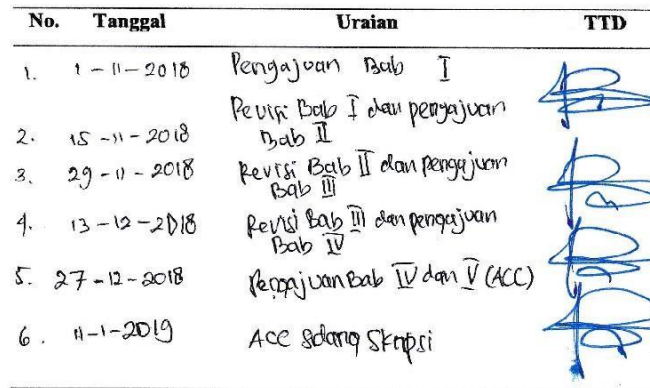 No. Tanggal Uraian TTD
1. 1-11-2018 Pengajuan Bab I
Revisi Bab I dan pengajuan
2. 15-11-2018 Bab II
3. 29-11-2018 Revisi Bab II dan pengajuan
Bab III
4. 13-12-2018 Revisi Bab III dan pengajuan
Bab IV
5. 27-12-2018 Pengajuan Bab IV dan V (ACC)
6. 11-1-2019 Acc sidang Skripsi